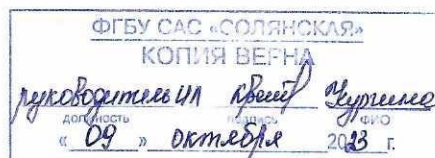 ФГБУ САС «СОЛЯНСКАЯ»
КОПИЯ ВЕРНА
руководитель ИЛ
должность подпись ФИО
« 09 » октября 2023 г.